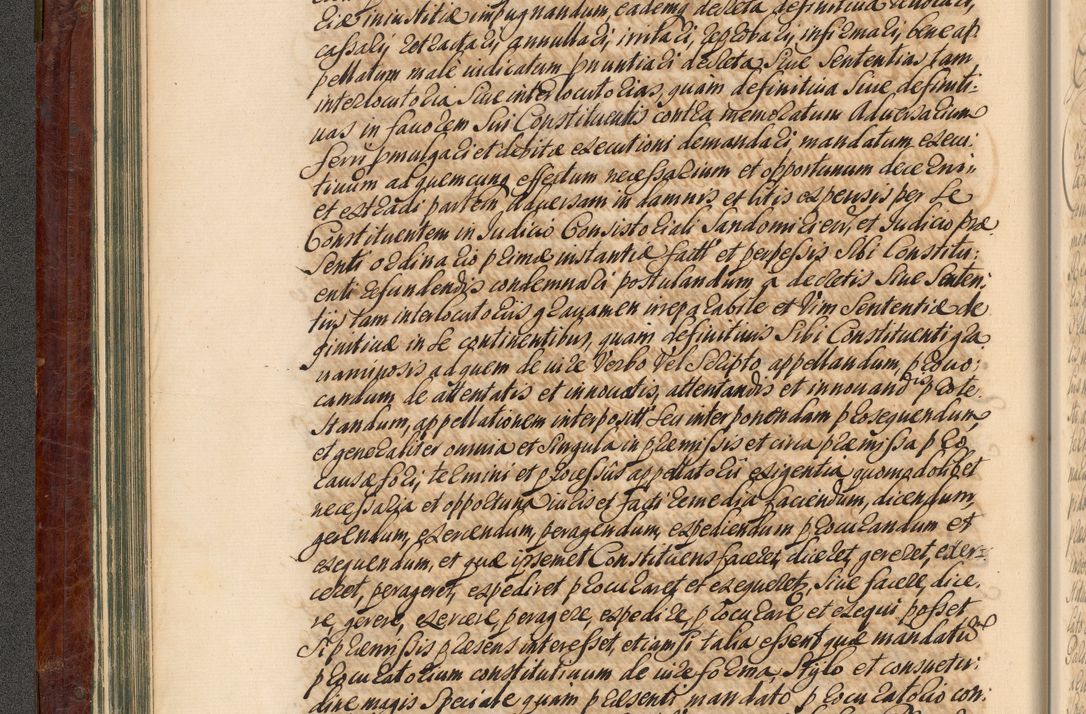 ciæ iniustitiæ impugnandum, eademq decreta definitiua reuocari,
cassari, retractari, annullari, irritari, reprobari, infirmari, bene ap
pellatum malè iudicatum pnuntiari decreta Siue Sententias tam
interlocutoria Siue interlocutorias, quàm definitiua Siue definiti:
uas in fauorem Sui Constituentis contra memoratum Aduersarium
ferri pmulgari et debitæ executioni demandari, mandatum execu:
tiuum ad quemcunq effectum necessarium et opportunum decerni
et extradi partem aduersam in damnis et litis expensis per Se
Constituentem in Judicio Consistoriali Sandomirien, et Judicio præ
Senti ordinario primæ instantiæ fact' et perpessis Sibi Constitu:
enti refundendis condemnari postulandum, à decretis Siue Senten:
tiis tam interlocutoriis grauamen irreparabile et Vim Sententiæ de
finitiuæ in Se continentibus, quàm definitiuis Sibi Constituenti gra
uaminosis ad quem de iure Verbo Vel Scripto appellandum, prouo:
candum de attentatis et innouatis, attentandis et innouandis prote
Standum, appellationem interposit' Seu interponendam prosequendum,
et generaliter omnia et Singula in præmissis et circa præmissa pro
causæ fori, termini et processus appellatorii exigentia quomodolibet
necessaria et opportuna iuris et facti remedia faciendum, dicendum,
gerendum, exercendum, peragendum, expediendum procurandum et
exequendum, et quæ ipsemet Constituens faceret, diceret, gereret, exer
ceret, perageret, expediret procuraret et exequeretur, Siue facere, dice:
re, gerere, exercere, peragere, expedire procurare et exequi posset
Si præmissis præsens interesset, etiamsi talia essent quæ mandatum
procuratorium constitutiuum de iure forma Stylo et consuetu:
dine magis Speciale quàm præsenti mandato procuratorio con: